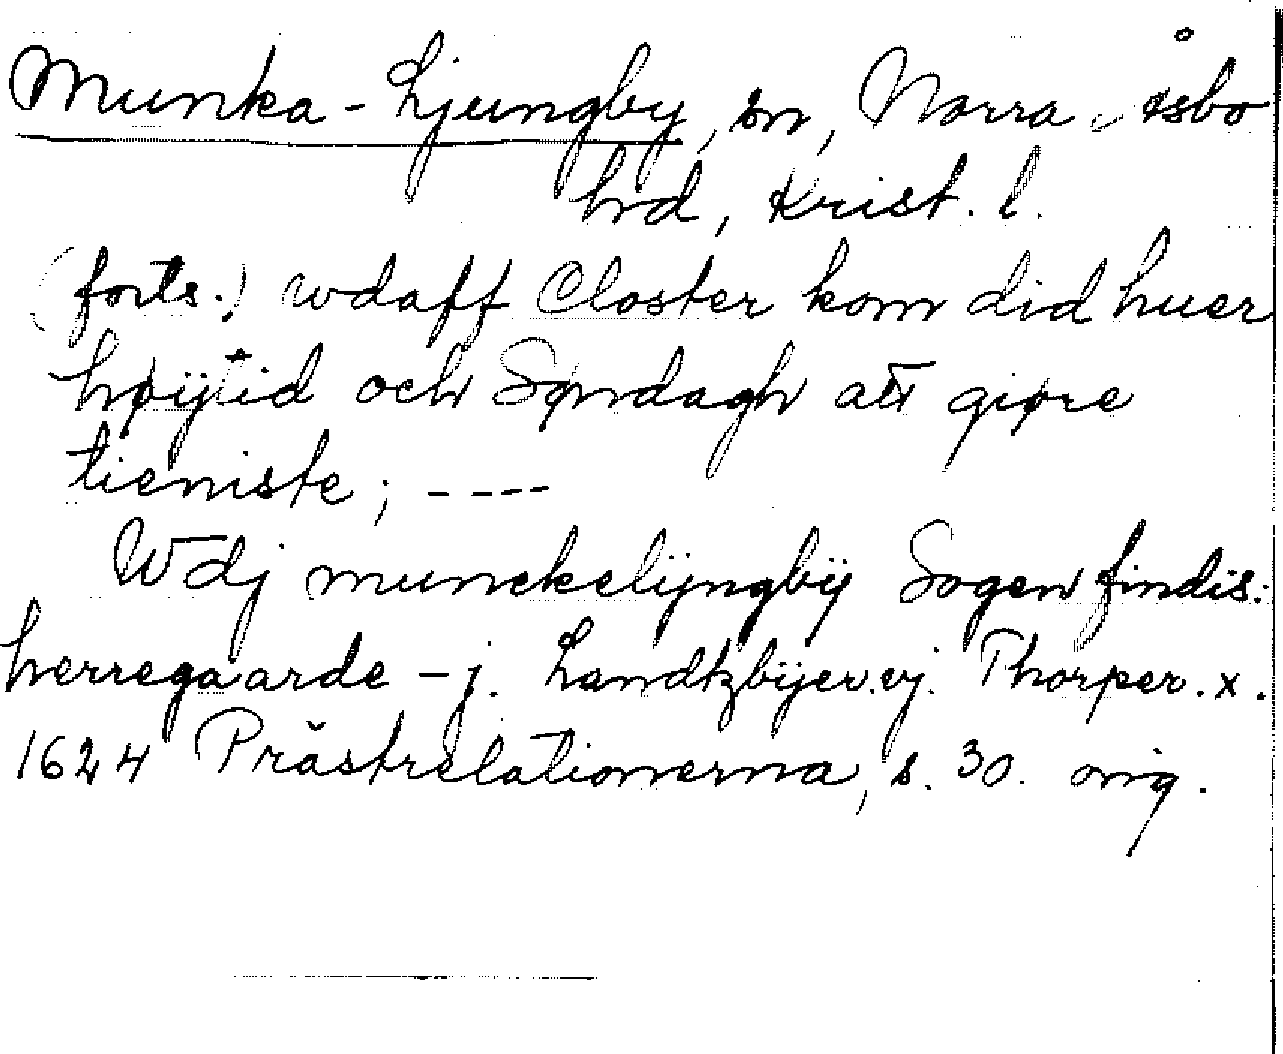 Munka-Ljungby, sn, Norra Åsbo
hd, Krist. l.
(forts.) wdaff Closter kom did huer
høÿtid och Søndagh att giøre
tieniste; ----
Wdj munckelÿngbÿ Sogen findis:
herregaarde - j. Landtzbÿer.vj. Thorper.x.
1624 Prästrelationerna, s. 30. orig.